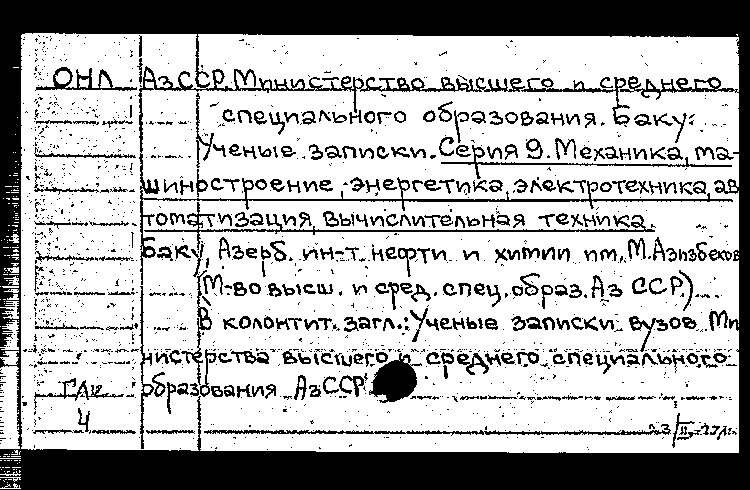 ОНЛ АзССР. Министерство высшего и среднего
специального образования. Баку:
Ученые записки. Серия 9. Механика, ма-
шиностроение, энергетика, электротехника, ав
томатизация, вычислительная техника.
Баку, Азерб. ин-т нефти и химии им. М. Азизбеков
(М-во высш. и сред. спец. образ. Аз ССР)
В колонтит. загл.: Ученые записки вузов Ми
нистерства высшего и среднего специального
образования АзССР
4